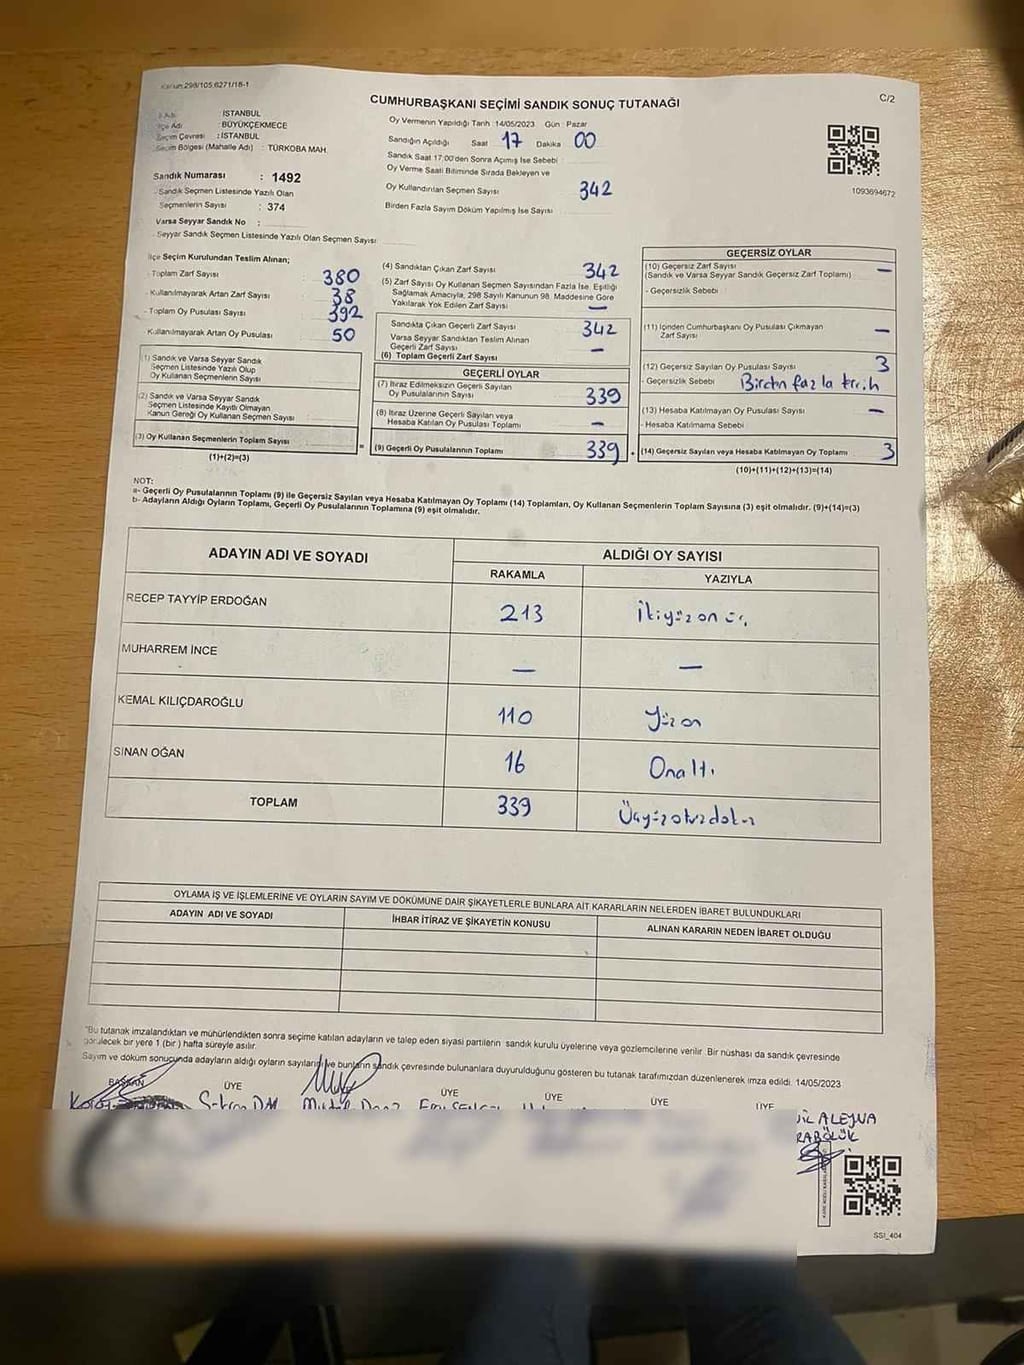 Kanun:298/105;6271/18-1
C/2
CUMHURBAŞKANI SEÇİMİ SANDIK SONUÇ TUTANAĞI
İli Adı : İSTANBUL
İlçe Adı : BÜYÜKÇEKMECE
Seçim Çevresi : İSTANBUL
Seçim Bölgesi (Mahalle Adı) : TÜRKOBA MAH.
Sandık Numarası : 1492
Sandık Seçmen Listesinde Yazılı Olan
Seçmenlerin Sayısı : 374
Varsa Seyyar Sandık No :
Seyyar Sandık Seçmen Listesinde Yazılı Olan Seçmen Sayısı
Oy Vermenin Yapıldığı Tarih :14/05/2023 Gün : Pazar
Sandığın Açıldığı Saat 17 Dakika 00
Sandık Saat 17:00'den Sonra Açımış İse Sebebi
Oy Verme Saati Bitiminde Sırada Bekleyen ve
Oy Kullandırılan Seçmen Sayısı 342
Birden Fazla Sayım Döküm Yapılmış İse Sayısı
1093694672
İlçe Seçim Kurulundan Teslim Alınan;
- Toplam Zarf Sayısı 380
- Kullanılmayarak Artan Zarf Sayısı 38
- Toplam Oy Pusulası Sayısı 392
- Kullanılmayarak Artan Oy Pusulası 50
(1) Sandık ve Varsa Seyyar Sandık
Seçmen Listesinde Yazılı Olup
Oy Kullanan Seçmenlerin Sayısı
(2) Sandık ve Varsa Seyyar Sandık
Seçmen Listesinde Kayıtlı Olmayan
Kanun Gereği Oy Kullanan Seçmen Sayısı
(3) Oy Kullanan Seçmenlerin Toplam Sayısı
(1)+(2)=(3)
(4) Sandıktan Çıkan Zarf Sayısı 342
(5) Zarf Sayısı Oy Kullanan Seçmen Sayısından Fazla İse, Eşitliği
Sağlamak Amacıyla, 298 Sayılı Kanunun 98. Maddesine Göre
Yakılarak Yok Edilen Zarf Sayısı —
Sandıkta Çıkan Geçerli Zarf Sayısı 342
Varsa Seyyar Sandıktan Teslim Alınan
Geçerli Zarf Sayısı —
(6) Toplam Geçerli Zarf Sayısı
GEÇERLİ OYLAR
(7) İtiraz Edilmeksizin Geçerli Sayılan
Oy Pusulalarının Sayısı 339
(8) İtiraz Üzerine Geçerli Sayılan veya
Hesaba Katılan Oy Pusulası Toplamı —
= (9) Geçerli Oy Pusulalarının Toplamı 339 +
GEÇERSİZ OYLAR
(10) Geçersiz Zarf Sayısı —
(Sandık ve Varsa Seyyar Sandık Geçersiz Zarf Toplamı)
- Geçersizlik Sebebi
(11) İçinden Cumhurbaşkanı Oy Pusulası Çıkmayan
Zarf Sayısı —
(12) Geçersiz Sayılan Oy Pusulası Sayısı 3
- Geçersizlik Sebebi Birden fazla tercih
(13) Hesaba Katılmayan Oy Pusulası Sayısı —
- Hesaba Katılmama Sebebi
(14) Geçersiz Sayılan veya Hesaba Katılmayan Oy Toplamı 3
(10)+(11)+(12)+(13)=(14)
NOT:
a- Geçerli Oy Pusulalarının Toplamı (9) ile Geçersiz Sayılan veya Hesaba Katılmayan Oy Toplamı (14) Toplamları, Oy Kullanan Seçmenlerin Toplam Sayısına (3) eşit olmalıdır. (9)+(14)=(3)
b- Adayların Aldığı Oyların Toplamı, Geçerli Oy Pusulalarının Toplamına (9) eşit olmalıdır.
ADAYIN ADI VE SOYADI
ALDIĞI OY SAYISI
RAKAMLA YAZIYLA
RECEP TAYYİP ERDOĞAN 213 İkiyüzonüç
MUHARREM İNCE — —
KEMAL KILIÇDAROĞLU 110 Yüzon
SİNAN OĞAN 16 Onaltı
TOPLAM 339 Üçyüzotuzdokuz
OYLAMA İŞ VE İŞLEMLERİNE VE OYLARIN SAYIM VE DÖKÜMÜNE DAİR ŞİKAYETLERLE BUNLARA AİT KARARLARIN NELERDEN İBARET BULUNDUKLARI
ADAYIN ADI VE SOYADI İHBAR İTİRAZ VE ŞİKAYETİN KONUSU ALINAN KARARIN NEDEN İBARET OLDUĞU
"Bu tutanak imzalandıktan ve mühürlendikten sonra seçime katılan adayların ve talep eden siyasi partilerin sandık kurulu üyelerine veya gözlemcilerine verilir. Bir nüshası da sandık çevresinde
görülecek bir yere 1 (bir ) hafta süreyle asılır.
Sayım ve döküm sonucunda adayların aldığı oyların sayılarını ve bunların sandık çevresinde bulunanlara duyurulduğunu gösteren bu tutanak tarafımızdan düzenlenerek imza edildi. 14/05/2023
BAŞKAN ÜYE ÜYE ÜYE ÜYE ÜYE
ALEYNA
SSI_404